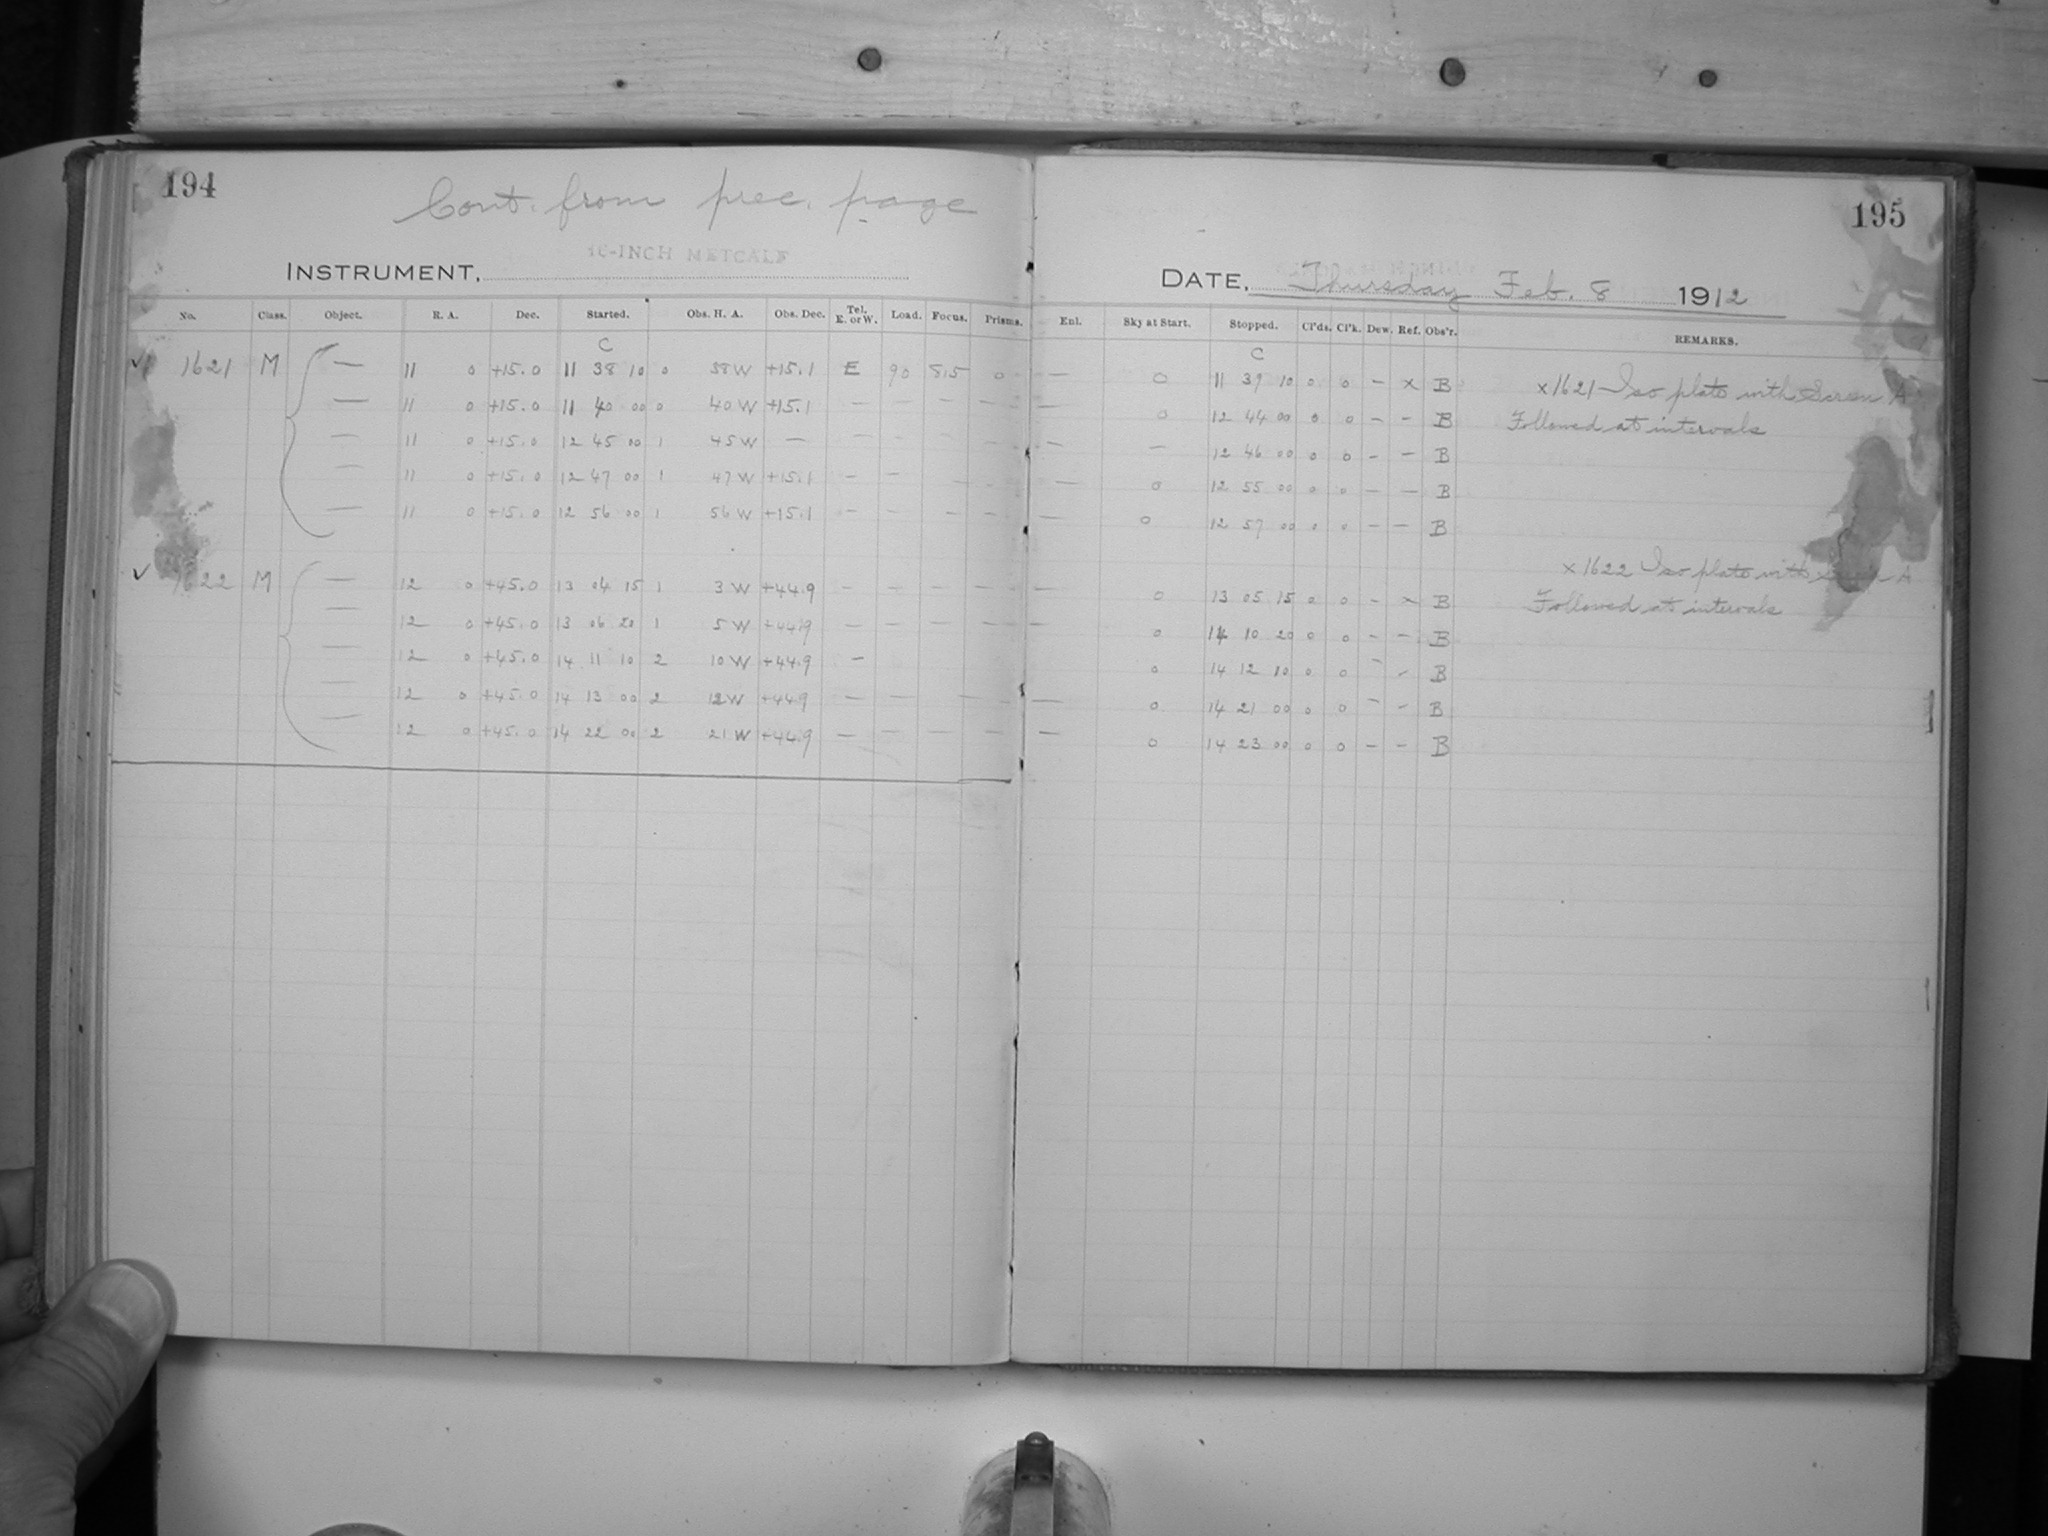 194
Cont. from prec. page
195
10-INCH METCALF
INSTRUMENT,
DATE, Thursday Feb. 8 1912
No. Class. Object. R. A. Dec. Started. Obs. H. A. Obs. Dec. Tel. E. or W. Load. Focus. Prisms. Enl. Sky at Start. Stopped. Cl'ds. Cl'k. Dew. Ref. Obs'r. REMARKS.
C C
✓ 1621 M — 11 0 +15.0 11 38 10 0 38W +15.1 E 90 8.5 0 — 0 11 39 10 0 0 – x B x1621 Iso plate with Screen A
— 11 0 +15.0 11 40 00 0 40W +15.1 — — — — — 0 12 44 00 0 0 – – B Followed at intervals
— 11 0 +15.0 12 45 00 1 45W — — — — — — — 12 46 00 0 0 – – B
— 11 0 +15.0 12 47 00 1 47W +15.1 — — — — — 0 12 55 00 0 0 – – B
— 11 0 +15.0 12 56 00 1 56W +15.1 — — — — — 0 12 57 00 0 0 – – B
✓ 1622 M — 12 0 +45.0 13 04 15 1 3W +44.9 — — — — — 0 13 05 15 0 0 – x B x1622 Iso plate with Screen A
— 12 0 +45.0 13 06 20 1 5W +44.9 — — — — — 0 14 10 20 0 0 – – B Followed at intervals
— 12 0 +45.0 14 11 10 2 10W +44.9 — 0 14 12 10 0 0 – – B
— 12 0 +45.0 14 13 00 2 12W +44.9 — — — — — 0 14 21 00 0 0 – – B
— 12 0 +45.0 14 22 00 2 21W +44.9 — — — — — 0 14 23 00 0 0 – – B